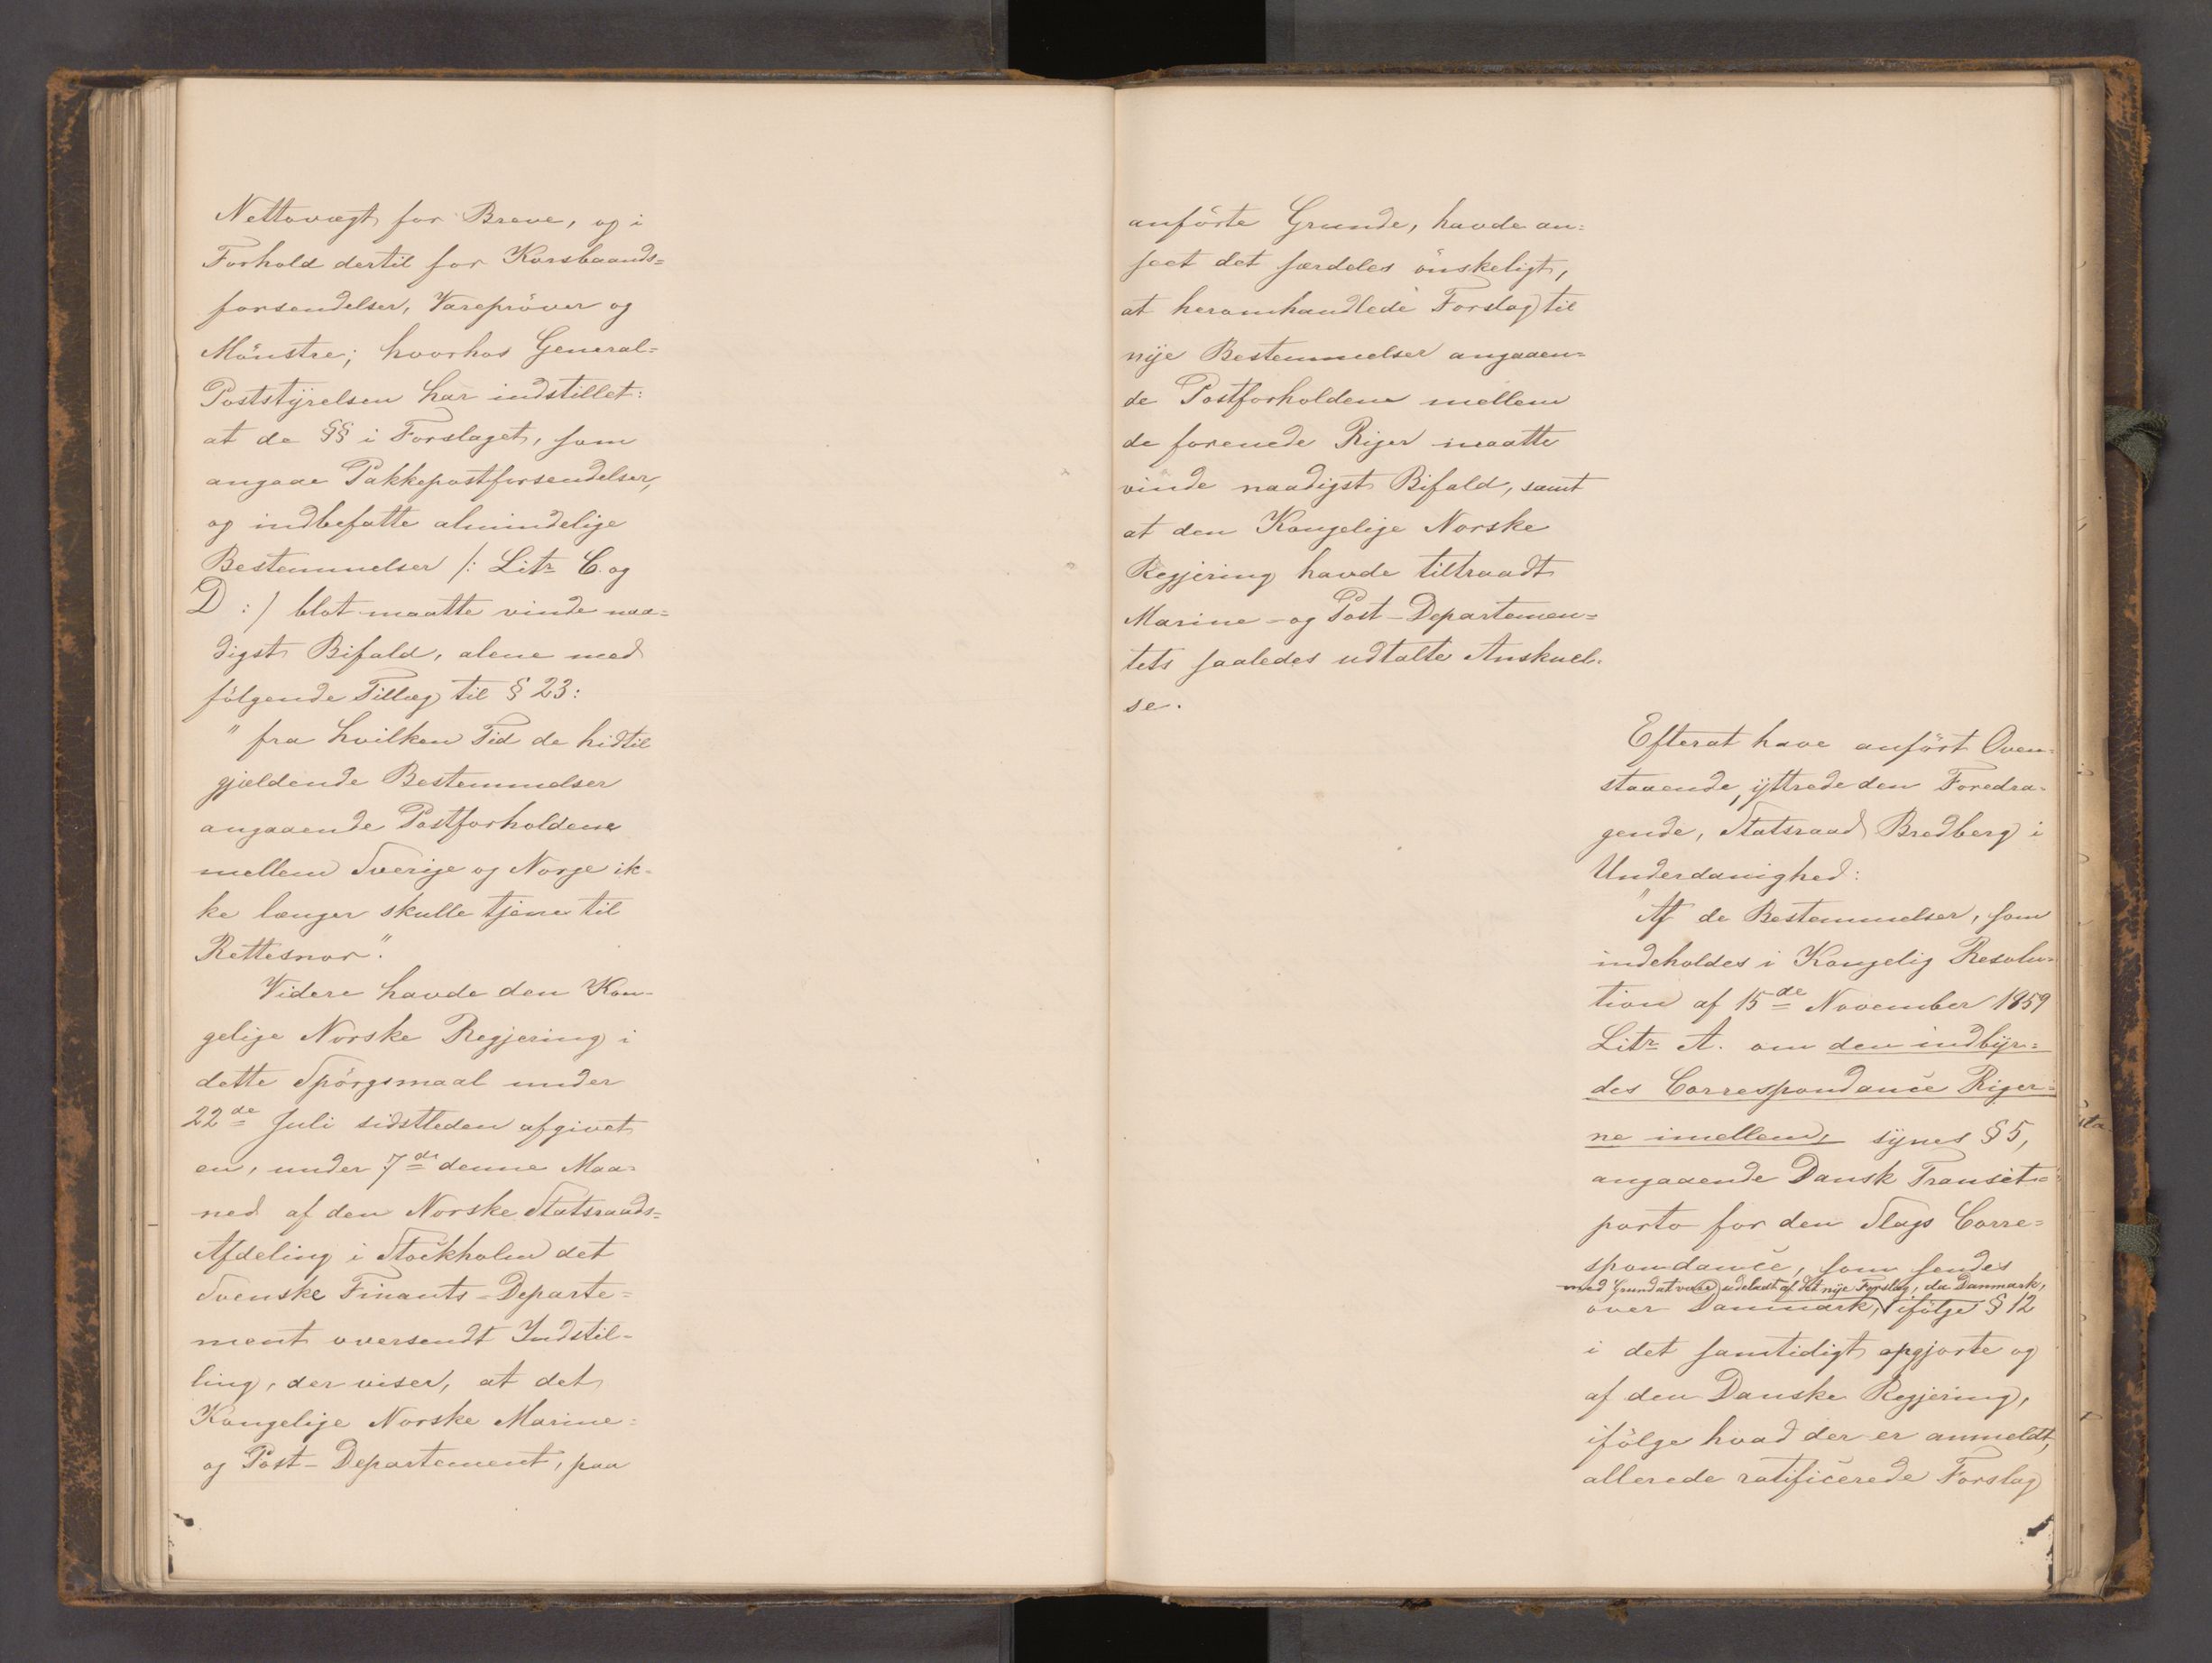 Nettovægt for Breve, og i
Forhold dertil for Korsbaands=
forsendelser, Varepröver og
Mönstre; hvorhos General=
Poststÿrelsen har indstillet:
at de §§ i Forslaget, som
angaae Pakkepostforsendelser,
og indbefatte almindelige
Bestemmelser /: Litr C. og
D :/ blot maatte vinde naa=
digst Bifald, alene med
fölgende Tillæg til § 23:
"fra hvilken Tid de hidtil
gjældende Bestemmelser
angaaende Postforholdene
mellem Sverige og Norge ik-
ke længer skulle tjene til
Rettesnor".
Videre havde den Kon-
gelige Norske Regjering i
dette Spörgsmaal under
22de Juli sidstleden afgivet
en, under 7de denne Maa=
ned af den Norske Statsraads=
Afdeling i Stockholm det
Svenske Finants-Departe=
ment oversendt Indstil-
ling, der viser, at det
Kongelige Norske Marine=
og Post-Departement, paa
anförte Grunde, havde an=
seet det særdeles önskeligt,
at heromhandlede Forslag til
nÿe Bestemmelser angaaen=
de Postforholdene mellem
de forenede Riger maatte
vinde naadigst Bifald, samt
at den Kongelige Norske
Regjering havde tiltraadt
Marine- og Post-Departemen=
tets saaledes udtalte Anskuel-
se.
Efterat have anfört Oven=
staaende, ÿttrede den Foredra-
gende, Statsraad Bredberg i
Underdanighed:
"Af de Bestemmelser, som
indeholdes i Kongelig Resolu=
tion af 15de November 1859
Litr A. om den indbÿr=
des Correspondance Riger=
ne imellem, sÿnes § 5,
angaaende Dansk Transit=
porto for den Slags Corre=
spondance, som sendes
med Grund at være udeladt af det nÿe Forslag, da Danmark,
over Danmark, ifölge § 12
i det samtidigt opgjorte og
af den Danske Regjering,
ifölge hvad der er anmeldt,
allerede ratificerede Forslag